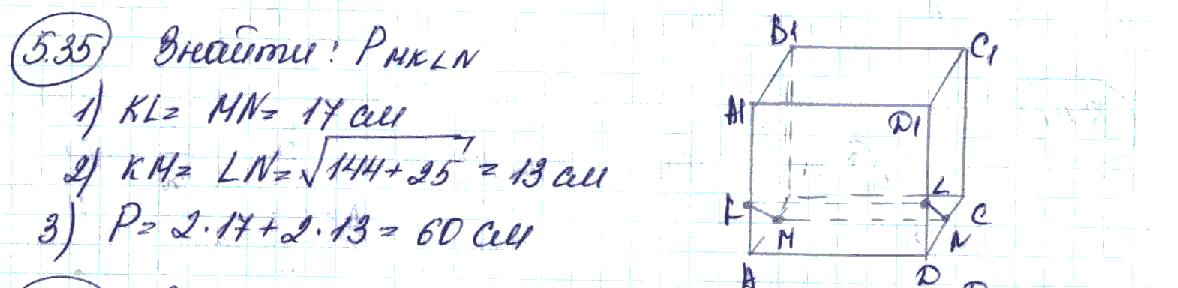 5.35 Знайти: P MKLN
1) KL = MN = 17 см
2) KM = LN = √144+25 = 13 см
3) P = 2·17+2·13 = 60 см
B1 C1
A1 D1
K M L N C
A D